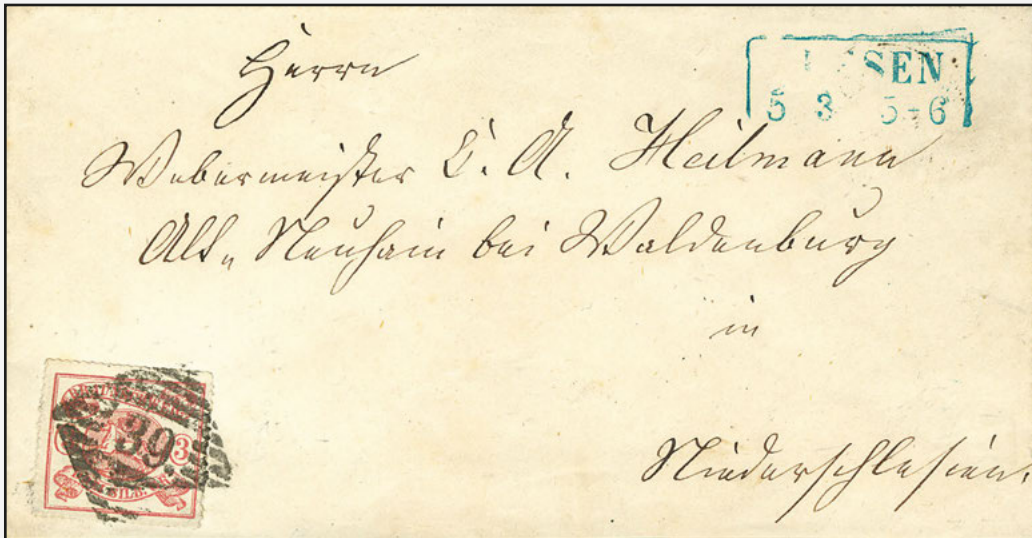 Herrn
SEN
5 3 5-6
Webermeister C. A. Heilmann
Alt-Neuhain bei Waldenburg
in
Niederschlesien.
39
3
SILB.